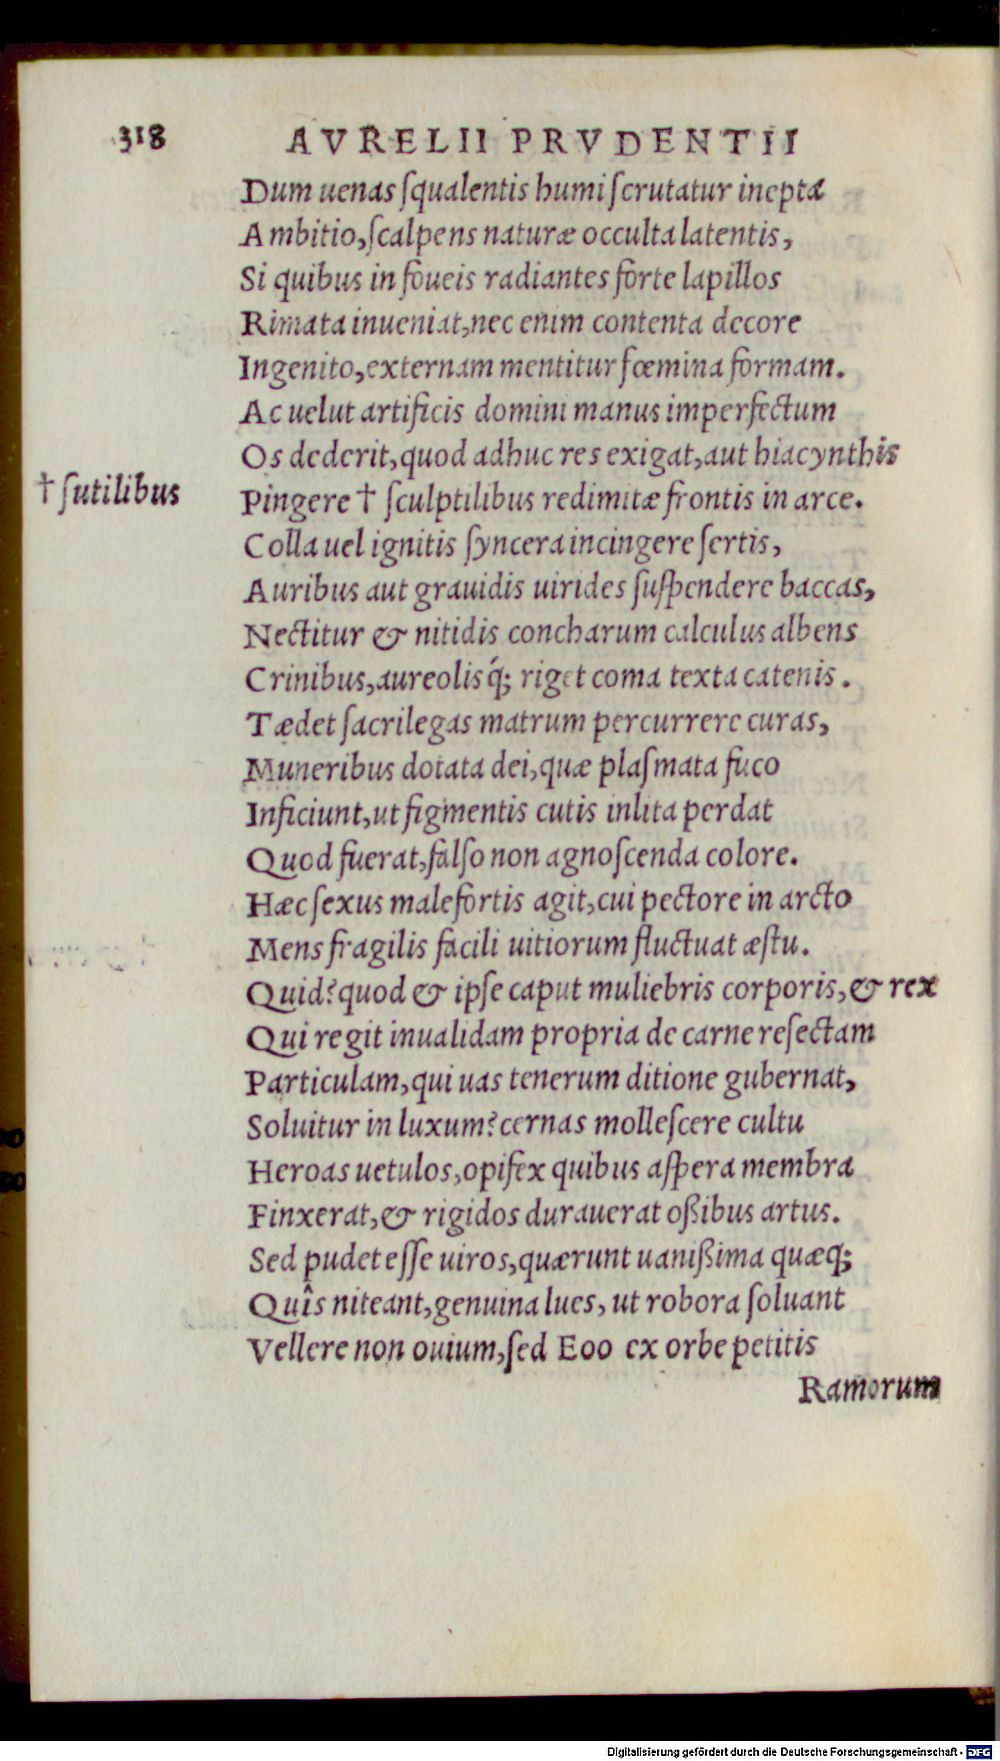 318 AVRELII PRVDENTII
Dum uenas ſqualentis humi ſcrutatur inepta
Ambitio, ſcalpens naturæ occulta latentis,
Si quibus in foueis radiantes forte lapillos
Rimata inueniat, nec enim contenta decore
Ingenito, externam mentitur fœmina formam.
Ac uelut artificis domini manus imperfectum
Os dederit, quod adhuc res exigat, aut hiacynthis
† ſutilibus
Pingere † ſculptilibus redimitæ frontis in arce.
Colla uel ignitis ſyncera incingere ſertis,
Auribus aut grauidis uirides ſuſpendere baccas,
Nectitur & nitidis concharum calculus albens
Crinibus, aureolisq́; riget coma texta catenis.
Tædet ſacrilegas matrum percurrere curas,
Muneribus dotata dei, quæ plaſmata fuco
Inficiunt, ut figmentis cutis inlita perdat
Quod fuerat, falſo non agnoſcenda colore.
Hæc ſexus malefortis agit, cui pectore in arcto
Mens fragilis facili uitiorum fluctuat æſtu.
Quid? quod & ipſe caput muliebris corporis, & rex
Qui regit inualidam propria de carne reſectam
Particulam, qui uas tenerum ditione gubernat,
Soluitur in luxum? cernas molleſcere cultu
Heroas uetulos, opifex quibus aſpera membra
Finxerat, & rigidos durauerat oßibus artus.
Sed pudet eſſe uiros, quærunt uanißima quæq;
Quîs niteant, genuina lues, ut robora ſoluant
Vellere non ouium, ſed Eoo ex orbe petitis
Ramorum
Digitalisierung gefördert durch die Deutsche Forschungsgemeinschaft - DFG